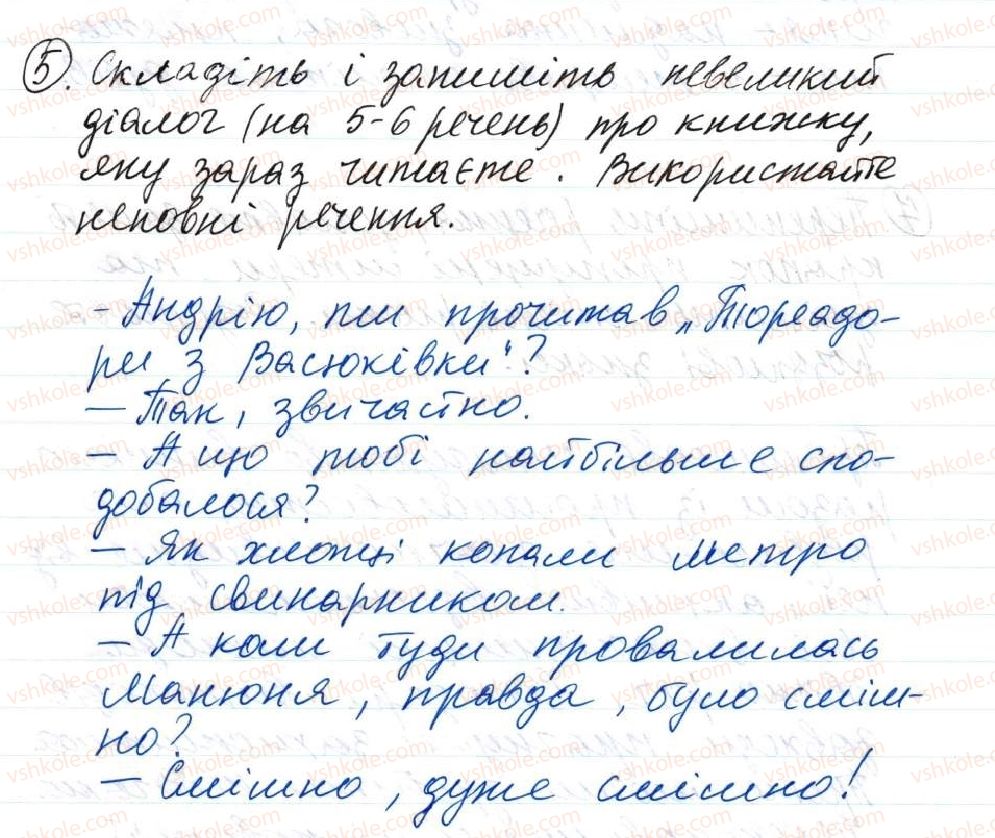 5. Складіть і запишіть невеликий
діалог (на 5-6 речень) про книжку,
яку зараз читаєте. Використайте
неповні речення.
- Андрію, ти прочитав „Тореадо-
ри з Васюківки"?
- Так, звичайно.
- А що тобі найбільше спо-
добалося?
- Як хлопці копали метро
під свинарником.
- А коли туди провалилась
Манюня, правда, було сміш-
но?
- Смішно, дуже смішно!